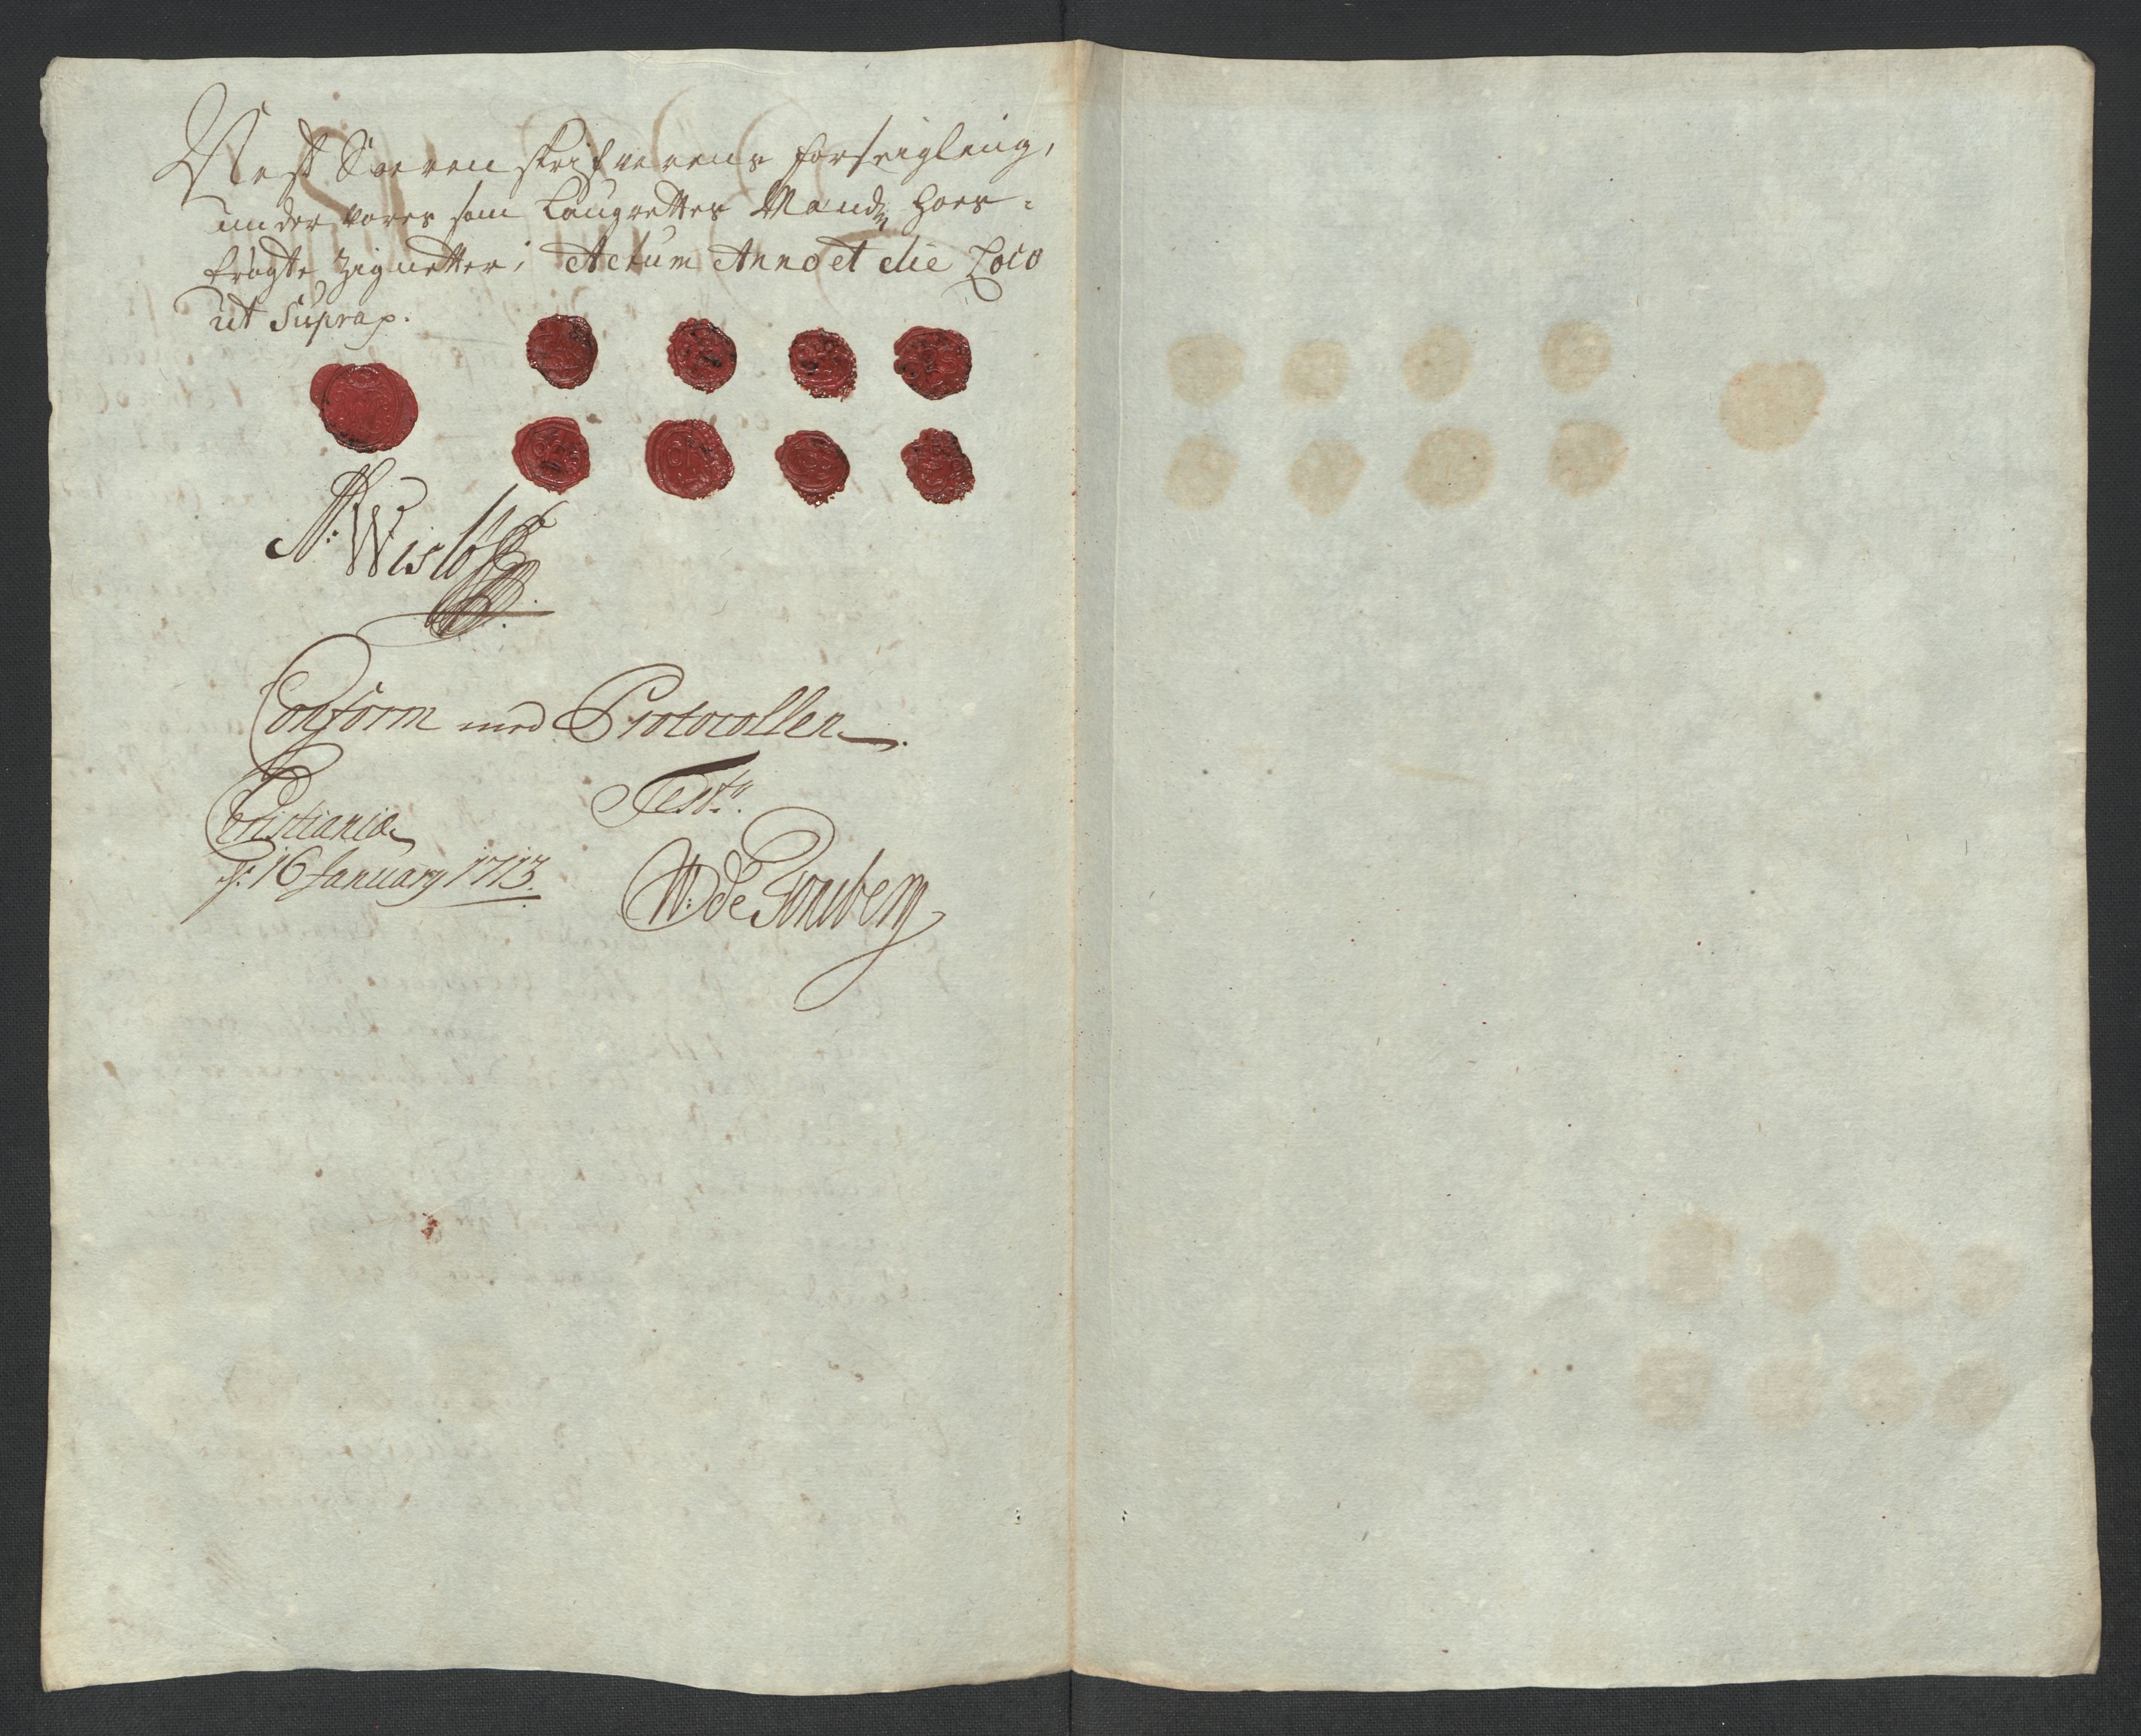 Nest Soeren skrifverens forseigling,
under vores som Laugrettes Mænd hoes-
trögte Zignetter, Actum Anno et die Loco
ut Supra p.
N: Wislöff
Conform med Protocollen
Christiania Test.
d: 16 January 1713.
W: de Tonsberg